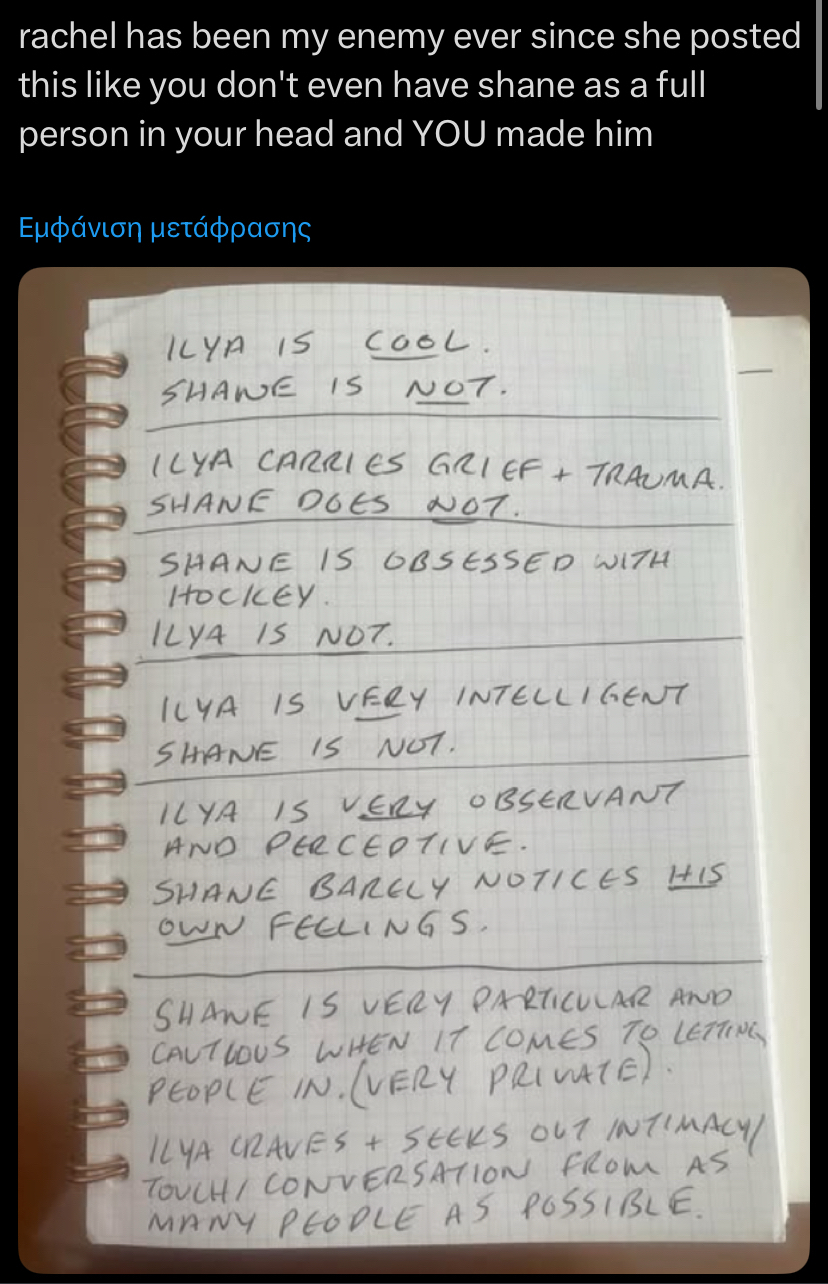 rachel has been my enemy ever since she posted
this like you don't even have shane as a full
person in your head and YOU made him
Εμφάνιση μετάφρασης
ILYA IS COOL.
SHANE IS NOT.
ILYA CARRIES GRIEF + TRAUMA.
SHANE DOES NOT.
SHANE IS OBSESSED WITH
HOCKEY.
ILYA IS NOT.
ILYA IS VERY INTELLIGENT
SHANE IS NOT.
ILYA IS VERY OBSERVANT
AND PERCEPTIVE.
SHANE BARELY NOTICES HIS
OWN FEELINGS.
SHANE IS VERY PARTICULAR AND
CAUTIOUS WHEN IT COMES TO LETTING
PEOPLE IN. (VERY PRIVATE).
ILYA CRAVES + SEEKS OUT INTIMACY/
TOUCH/CONVERSATION FROM AS
MANY PEOPLE AS POSSIBLE.